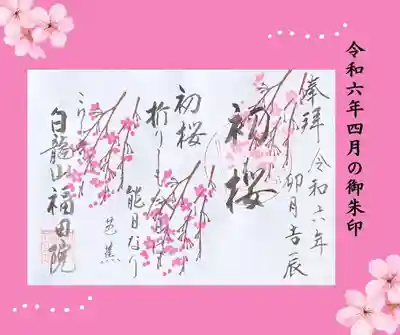 令和六年四月の御朱印
奉拝 令和六年
卯月吉辰
初桜
初桜
折りしも今日は
能日なり
芭蕉
白龍山福田院